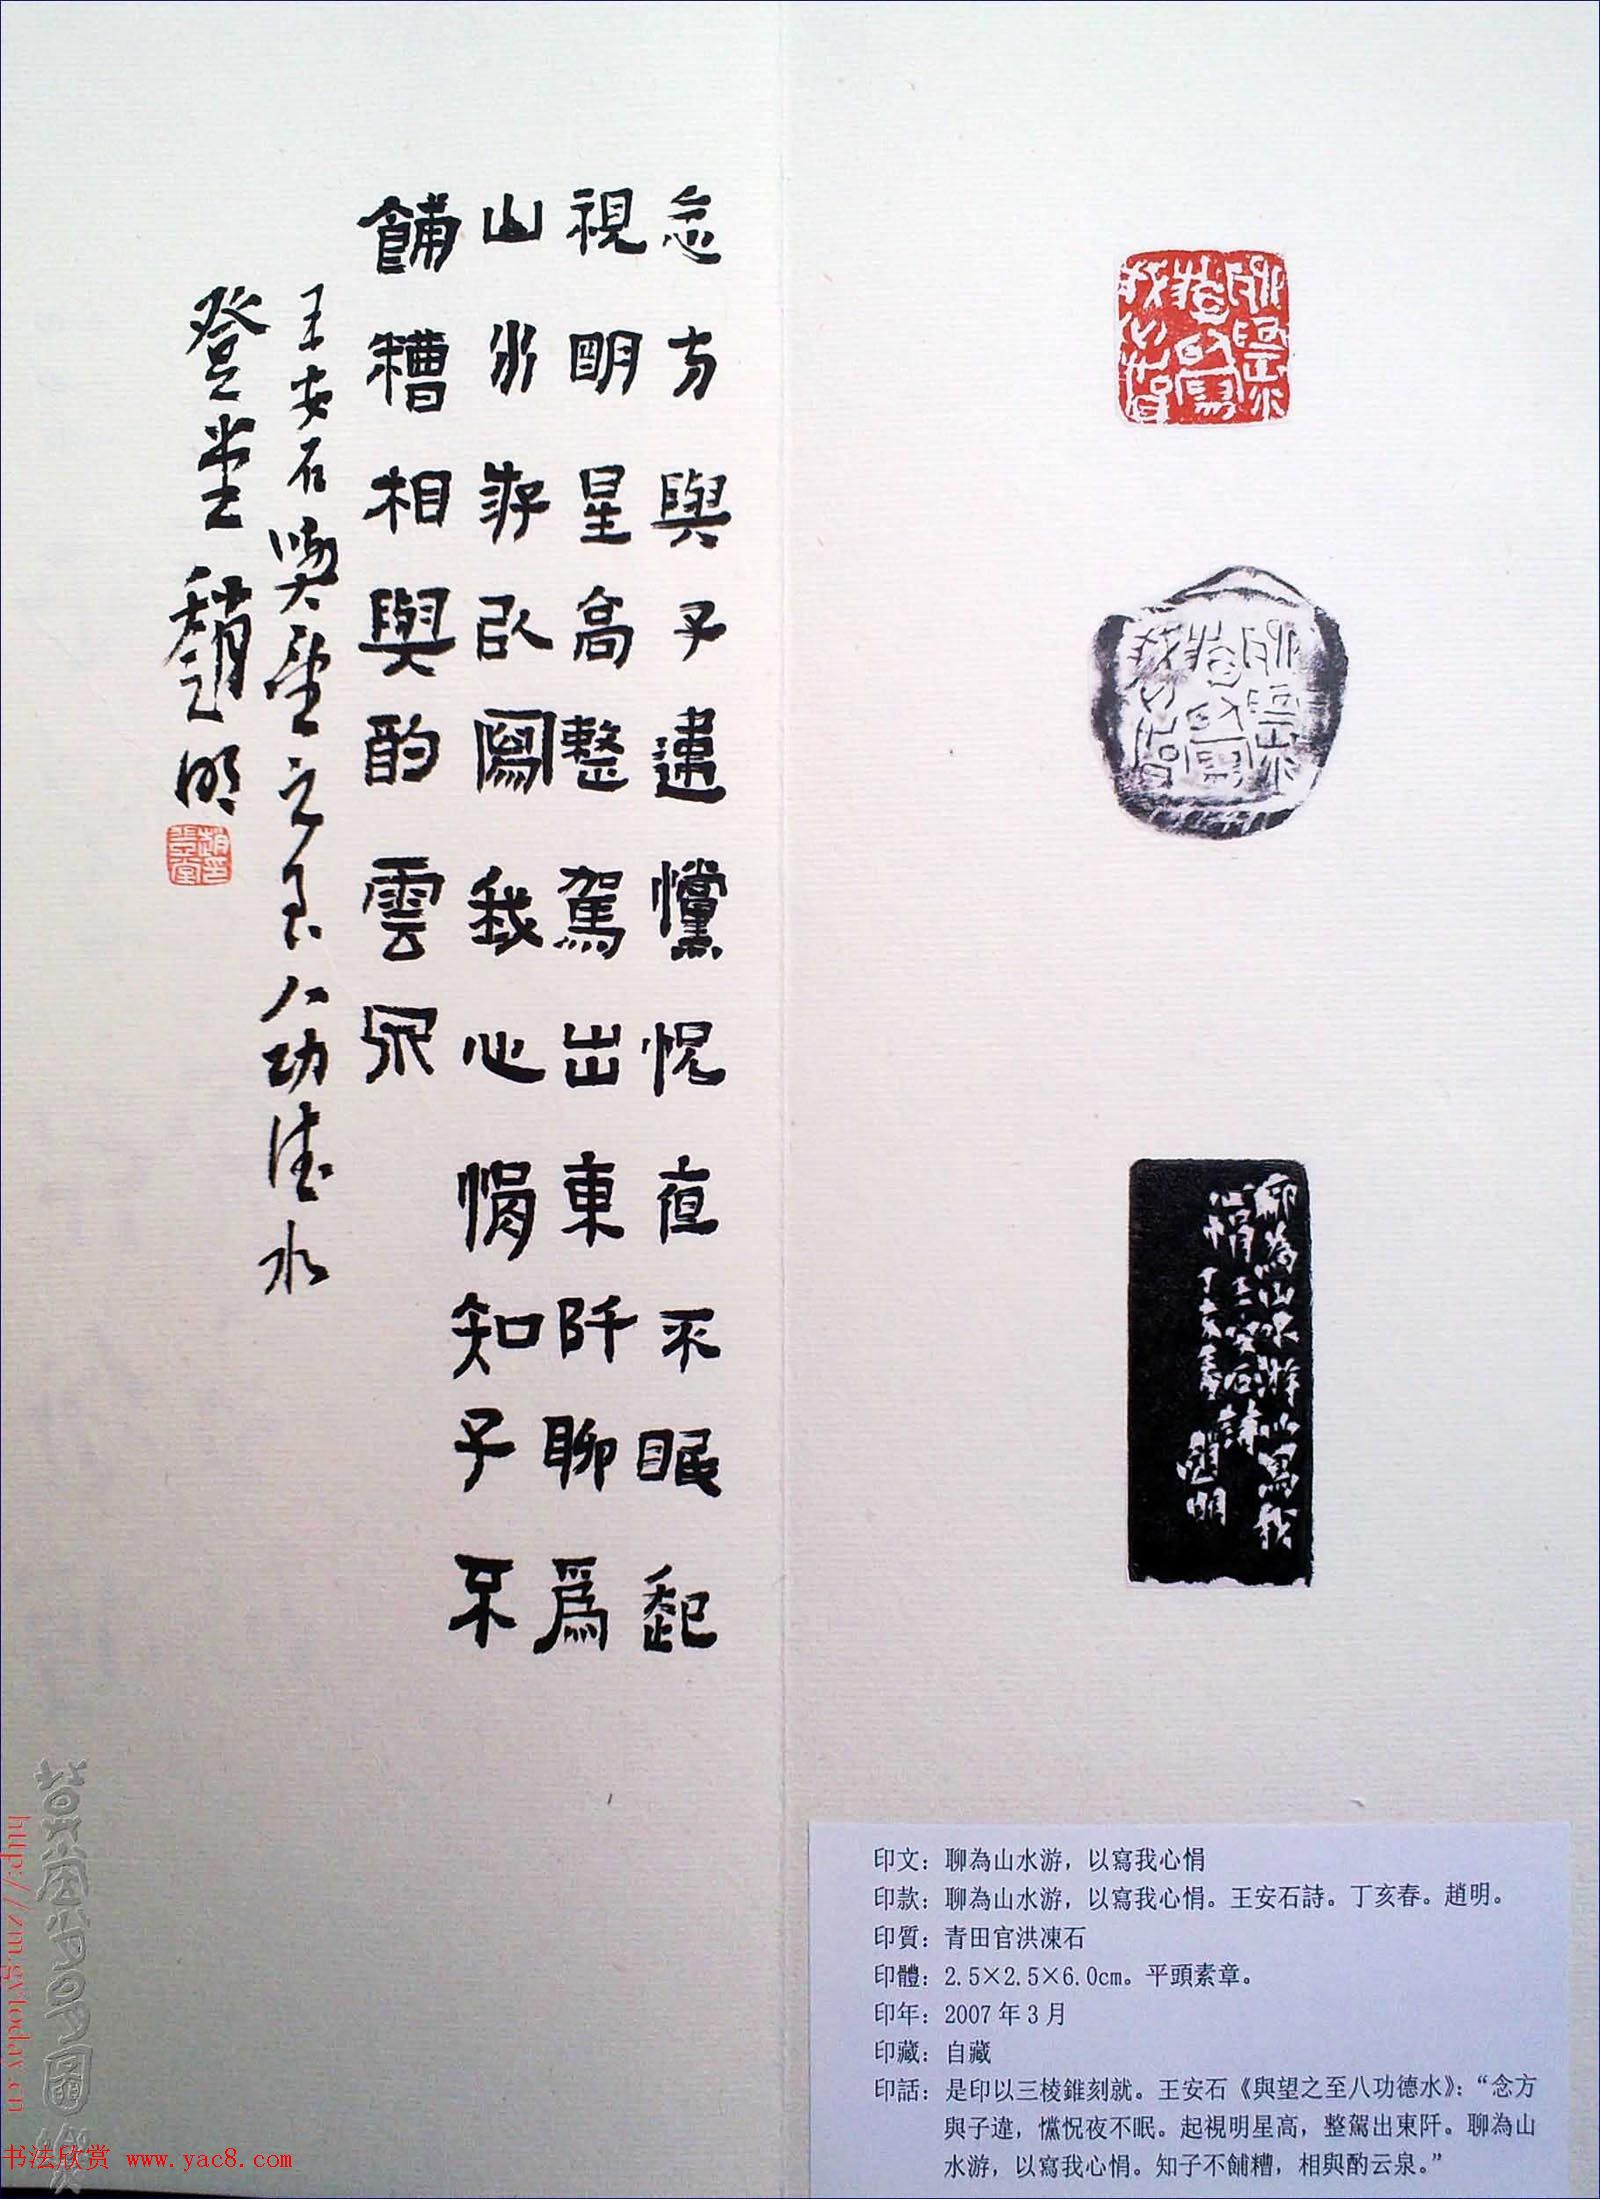 聊為山水游以寫我心悁
聊為山水游以寫我
心悁王安石詩
丁亥春趙明
念方與子違戃怳夜不眠起
視明星高整駕出東阡聊為
山水游以寫我心悁知子不
餔糟相與酌雲泉
王安石與望之至八功德水
登堂趙明
印文：聊為山水游，以寫我心悁
印款：聊為山水游，以寫我心悁。王安石詩。丁亥春。趙明。
印質：青田官洪凍石
印體：2.5×2.5×6.0cm。平頭素章。
印年：2007年3月
印藏：自藏
印話：是印以三棱錐刻就。王安石《與望之至八功德水》：“念方
與子違，戃怳夜不眠。起視明星高，整駕出東阡。聊為山
水游，以寫我心悁。知子不餔糟，相與酌云泉。”
http://zm.gytoday.cn
书法欣赏 www.yac8.com